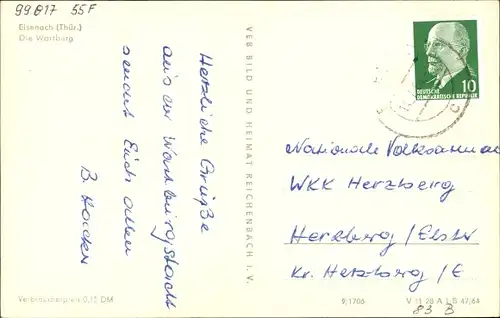 99817 55F
Eisenach (Thür.)
Die Wartburg
Herzliche Grüße
aus der Wartburgstadt
sendet Euch allen
B.
VEB BILD UND HEIMAT REICHENBACH I. V.
10
DEUTSCHE
DEMOKRATISCHE REPUBLIK
Nationale Volksarmee
WKK Herzberg
Herzberg/Elster
Kr. Herzberg/E.
Verbraucherpreis 0,15 DM
9/1706
V 11 28 A 1 B 47/64
83 B